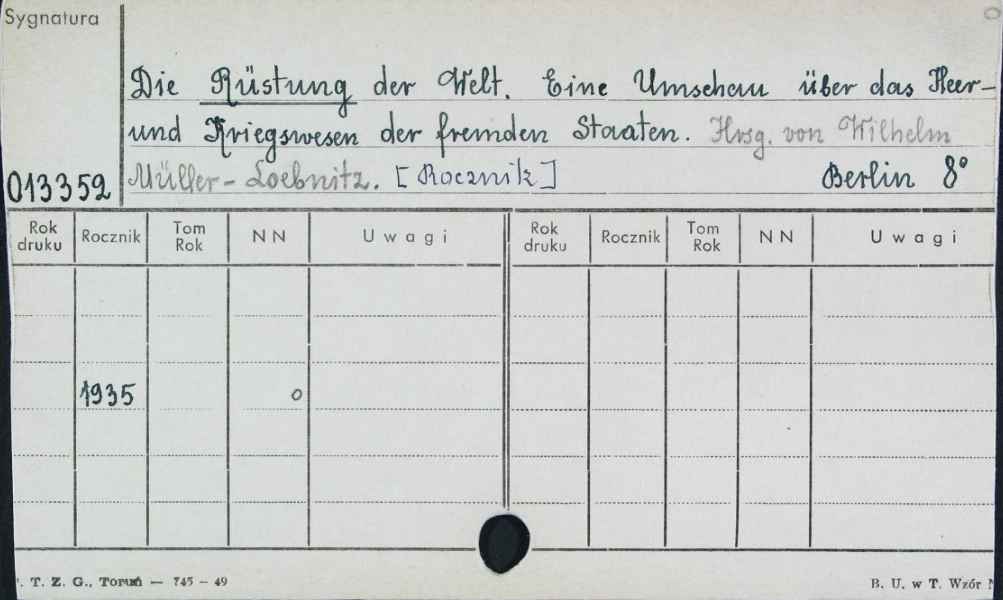 Sygnatura
Die Rüstung der Welt. Eine Umschau über das Heer-
und Kriegswesen der fremden Staaten. Hrsg. von Wilhelm
013352 Müller-Loebnitz. [Rocznik] Berlin 8°
Rok druku Rocznik Tom Rok NN Uwagi Rok druku Rocznik Tom Rok NN Uwagi
1935 0
. T. Z. G., Toruń — 745 - 49 B. U. w T. Wzór